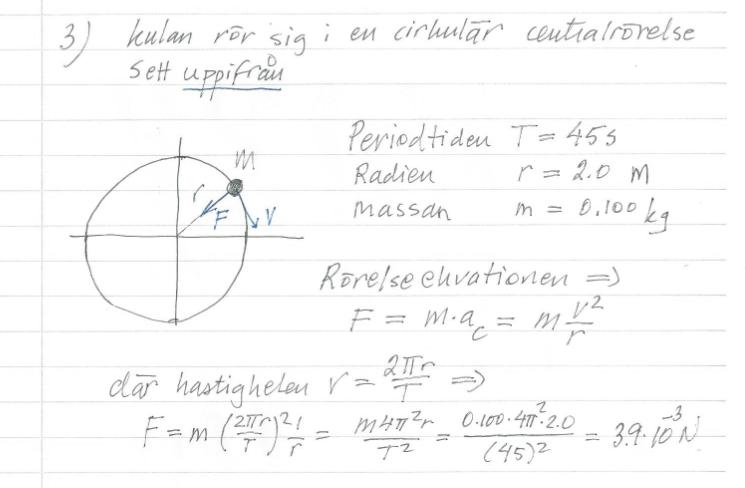 3) kulan rör sig i en cirkulär centralrörelse
sett uppifrån
m
r
F
v
Periodtiden T = 45s
Radien r = 2.0 m
massan m = 0.100 kg
Rörelseekvationen =>
F = m·a_c = m v²/r
där hastigheten v = 2πr/T =>
F = m (2πr/T)² 1/r = m4π²r/T² = 0.100·4π²·2.0/(45)² = 3.9·10⁻³ N